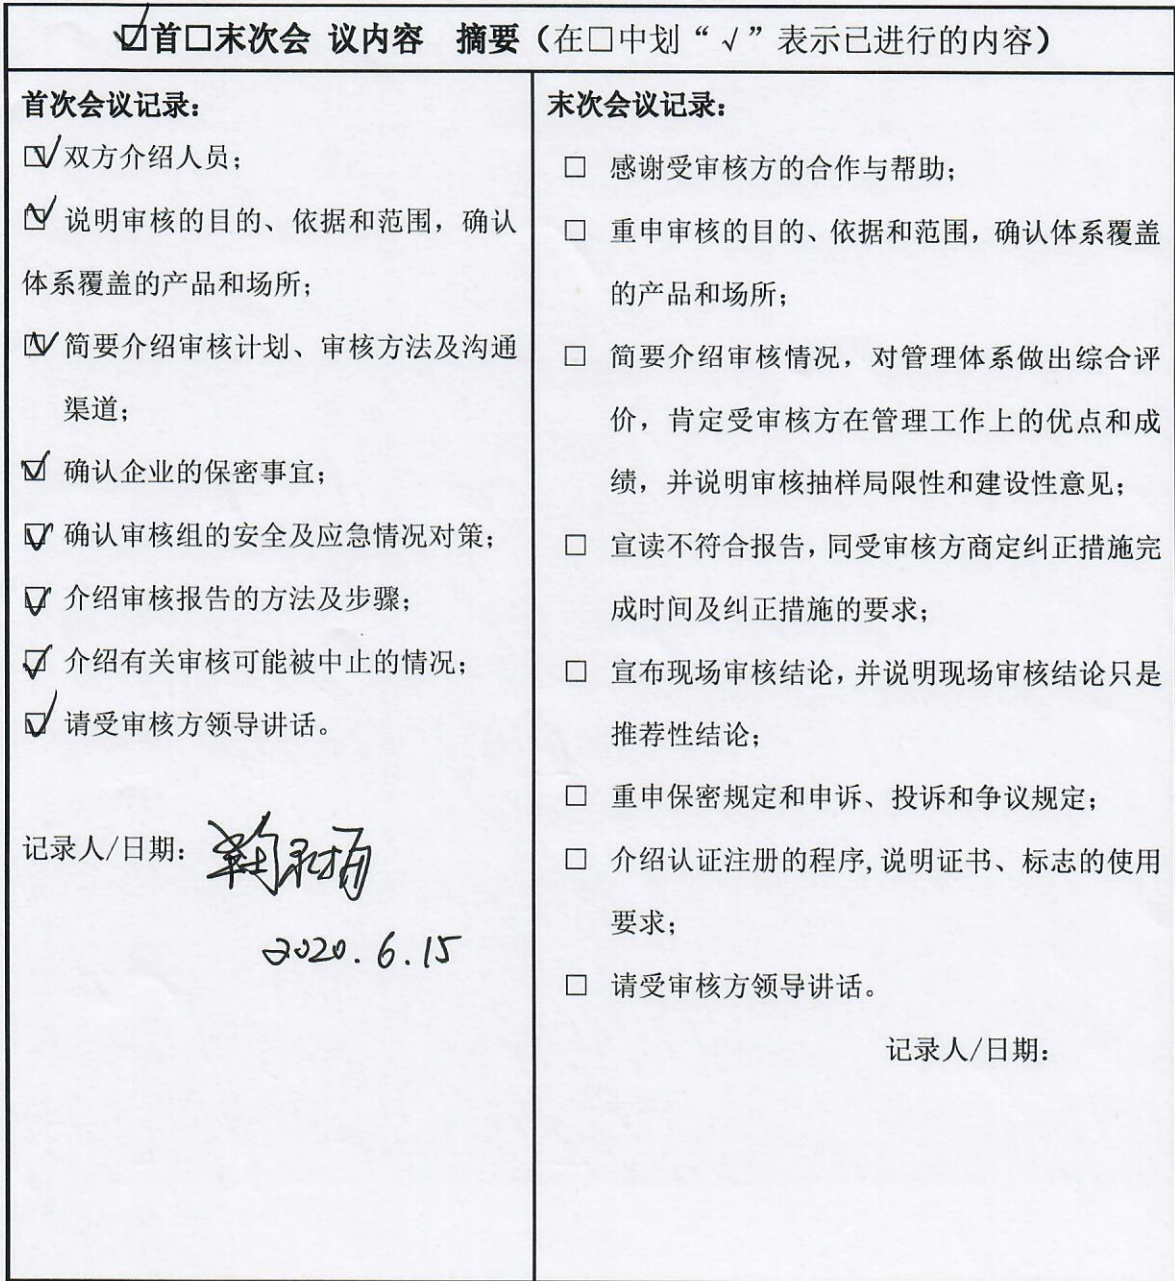 ☑首□末次会 议内容 摘要（在□中划“√”表示已进行的内容）
首次会议记录：
☑双方介绍人员；
☑ 说明审核的目的、依据和范围，确认
体系覆盖的产品和场所；
☑简要介绍审核计划、审核方法及沟通
渠道；
☑ 确认企业的保密事宜；
☑ 确认审核组的安全及应急情况对策；
☑ 介绍审核报告的方法及步骤；
☑ 介绍有关审核可能被中止的情况；
☑ 请受审核方领导讲话。
记录人/日期：
2020.6.15
末次会议记录：
□ 感谢受审核方的合作与帮助；
□ 重申审核的目的、依据和范围，确认体系覆盖
的产品和场所；
□ 简要介绍审核情况，对管理体系做出综合评
价，肯定受审核方在管理工作上的优点和成
绩，并说明审核抽样局限性和建设性意见；
□ 宣读不符合报告，同受审核方商定纠正措施完
成时间及纠正措施的要求；
□ 宣布现场审核结论，并说明现场审核结论只是
推荐性结论；
□ 重申保密规定和申诉、投诉和争议规定；
□ 介绍认证注册的程序,说明证书、标志的使用
要求；
□ 请受审核方领导讲话。
记录人/日期：